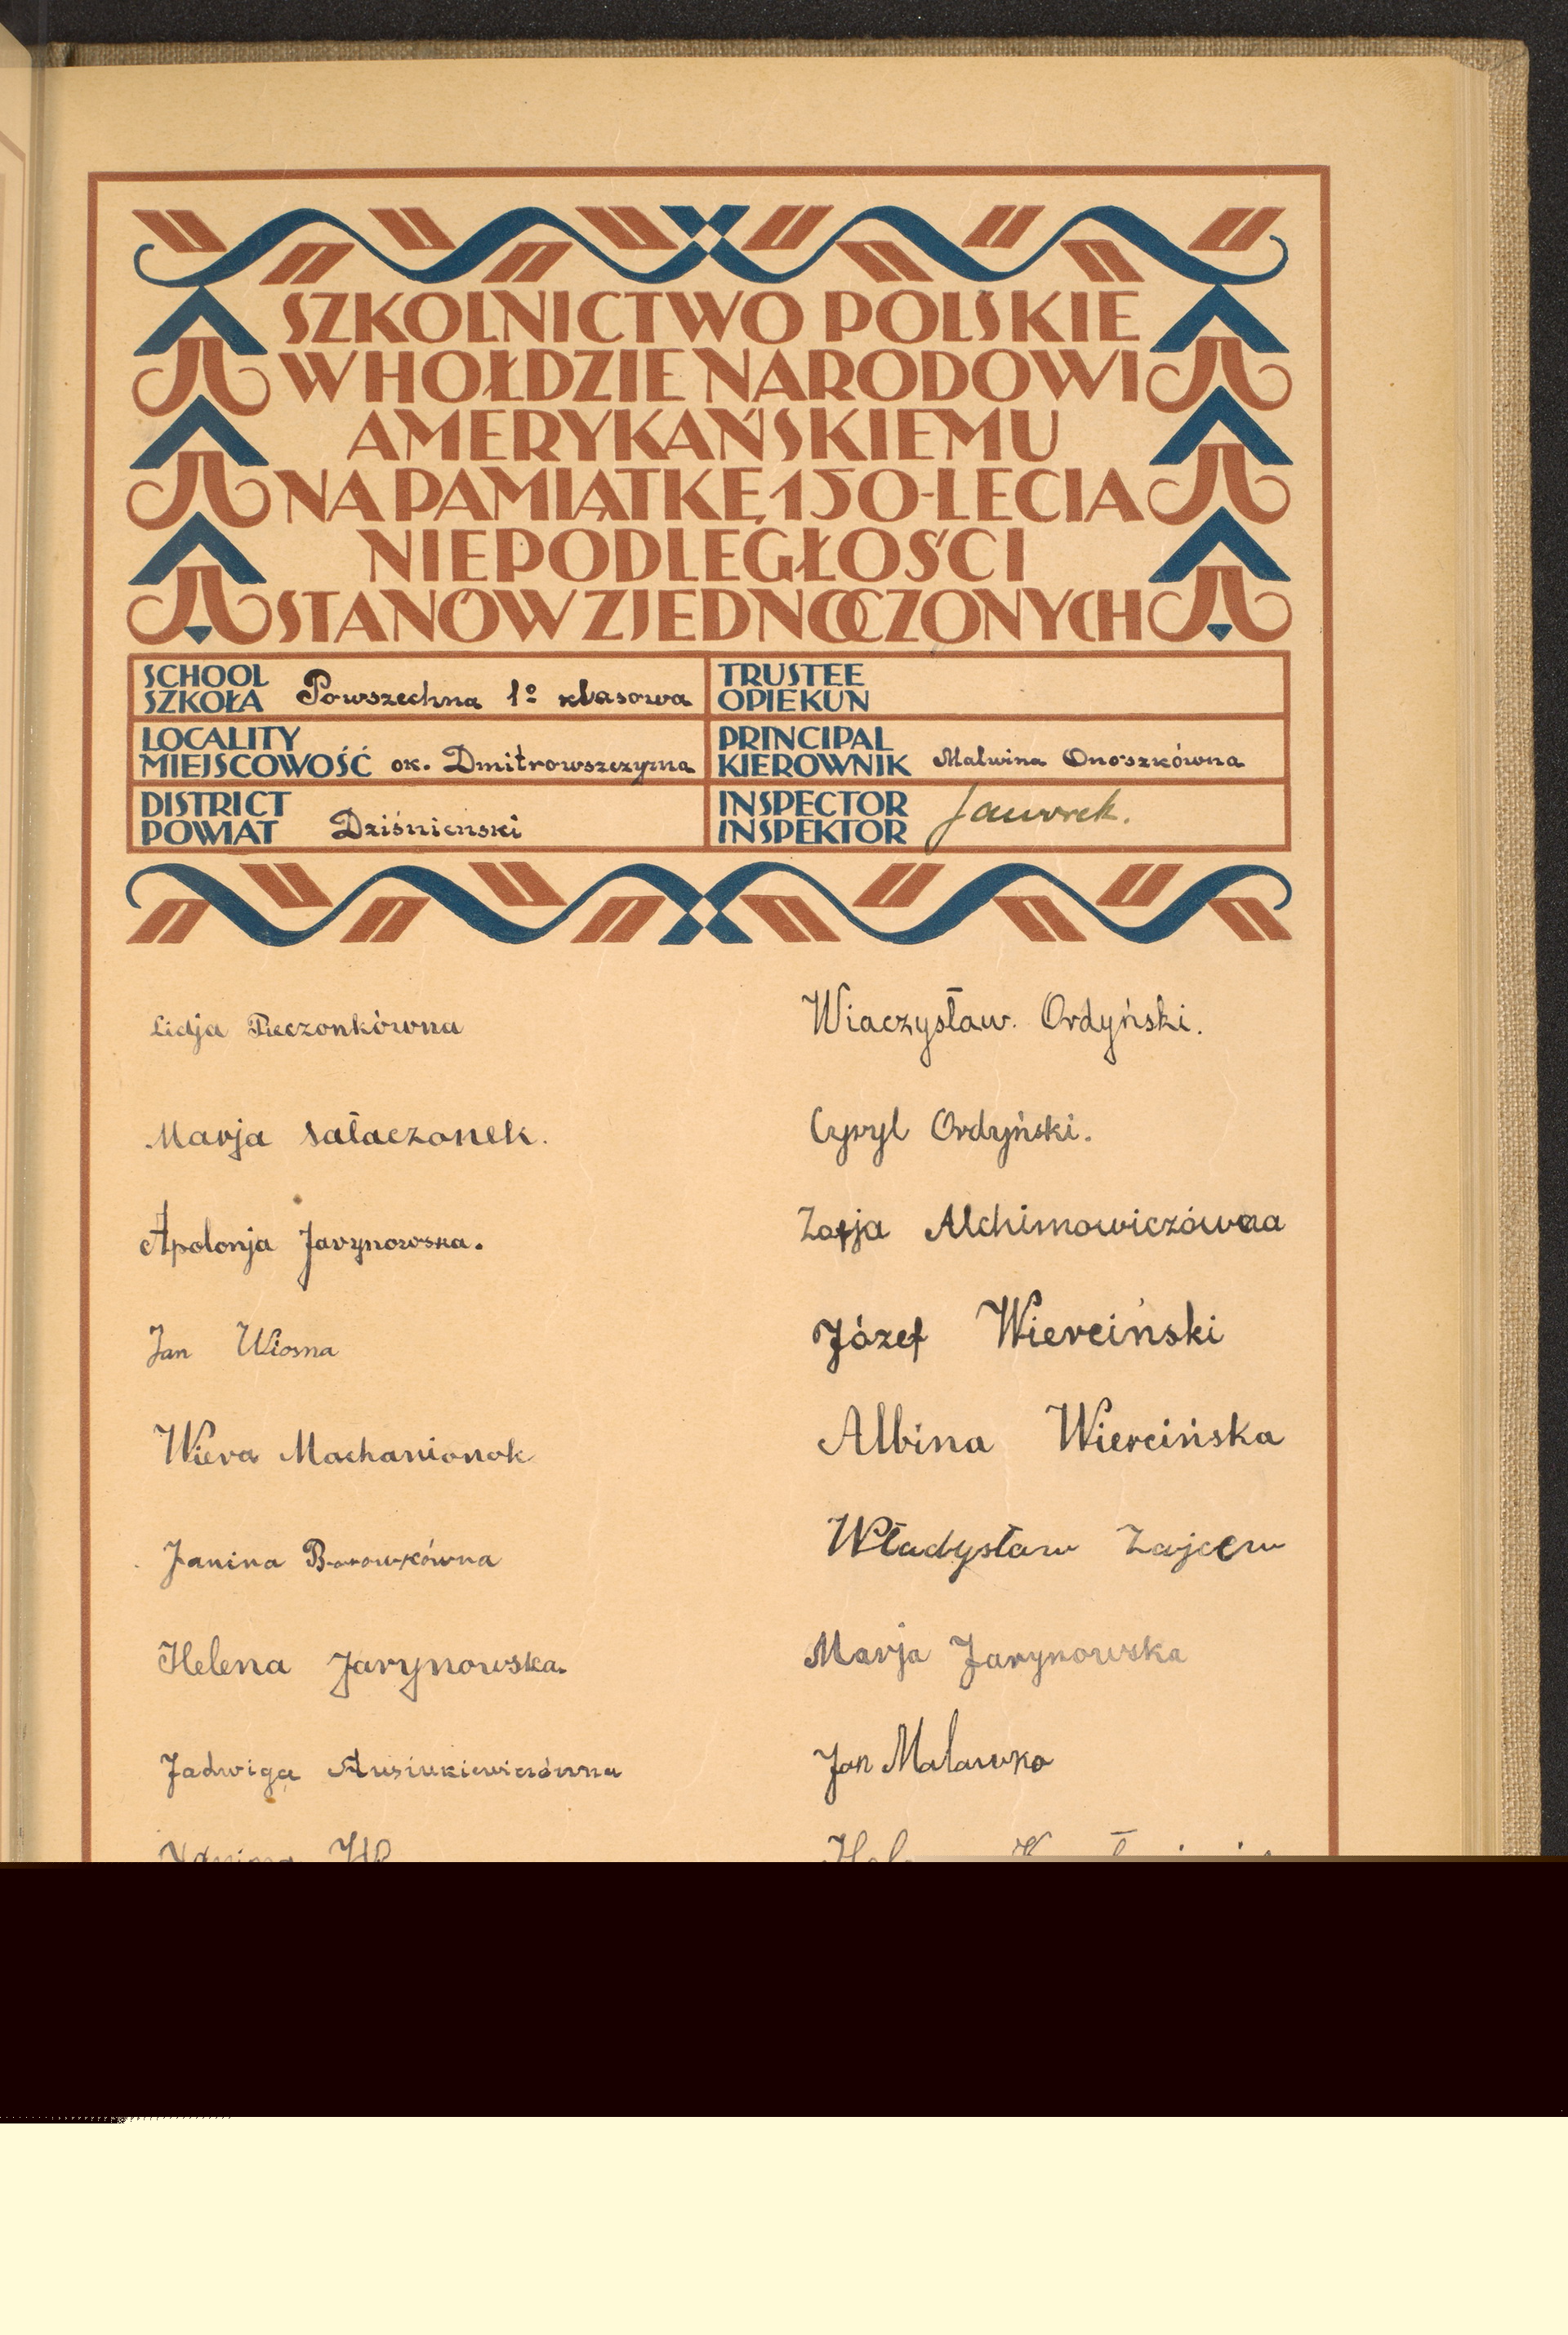 SZKOLNICTWO POLSKIE
W HOŁDZIE NARODOWI
AMERYKAŃSKIEMU
NA PAMIĄTKĘ 150-LECIA
NIEPODLEGŁOŚCI
STANÓW ZJEDNOCZONYCH
SCHOOL
SZKOŁA Powszechna 1º klasowa
TRUSTEE
OPIEKUN
LOCALITY
MIEJSCOWOŚĆ ok. Dmitrowszczyzna
PRINCIPAL
KIEROWNIK Malwina Onoszkówna
DISTRICT
POWIAT Dziśnienski
INSPECTOR
INSPEKTOR Jaworek.
Lidja
Marja Sałaczonek.
Apolonja Jarynowska.
Jan Wiosna
Wiera Machanionok
Janina Borowkówna
Helena Jarynowska.
Jadwiga
Wiaczysław. Ordyński.
Cyryl Ordyński.
Zofja Alchimowiczówna
Józef Wierciński
Albina Wiercińska
Władysław Zajcew
Marja Jarynowska
Jan Maławko